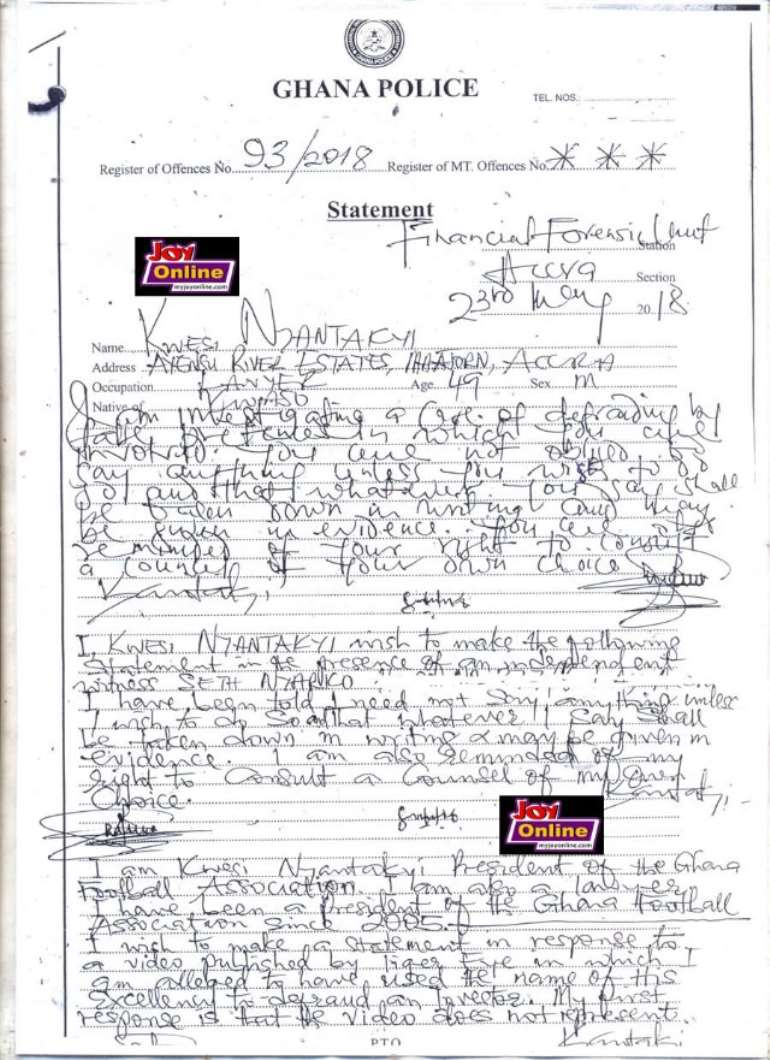 GHANA POLICE
TEL. NOS.:
Register of Offences No. 93/2018 Register of MT. Offences No. * * *
Statement
Financial Forensic Unit Station
Accra Section
23rd May 2018
Joy
Online
myjoyonline.com
Name KWESI NYANTAKYI
Address AYENSU RIVER ESTATES, ACCRA
Occupation LAWYER Age 49 Sex M
Native of
I am investigating a case of defrauding by
false pretences in which you are
involved. You are not obliged to
say anything unless you wish to do
so and that whatever you say shall
be taken down in writing and may
be given in evidence. You are also
reminded of your right to consult
a counsel of your own choice.
I, KWESI NYANTAKYI wish to make the following
statement in the presence of an independent
witness SETH NYARKO
I have been told I need not say anything unless
I wish to do so & that whatever I say shall
be taken down in writing & may be given in
evidence. I am also reminded of my
right to consult a counsel of my own
choice.
Joy
Online
myjoyonline.com
I am Kwesi Nyantakyi President of the Ghana
Football Association. I am also a lawyer.
I have been a president of the Ghana Football
Association since 2005.
I wish to make a statement in response to
a video published by Tiger Eye in which I
am alleged to have used the name of His
Excellency to defraud an investor. My first
response is that the video does not represent.
PTO